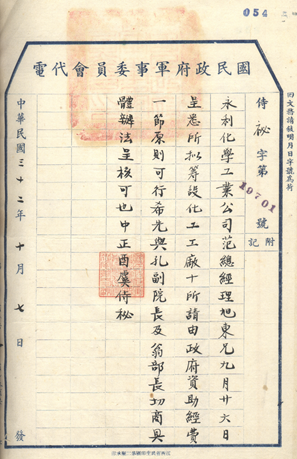 054
國民政府軍事委員會代電
回文務請敘明月日字號為荷
侍祕字第19701號
附記
永利化學工業公司范總經理旭東兄九月廿六日
呈悉所拟籌設化工工廠十所請由政府資助經費
一節原則可行希先與孔副院長及翁部長切商具
體辦法呈核可也中正酉虞侍祕
中華民國三十二年十月七日發